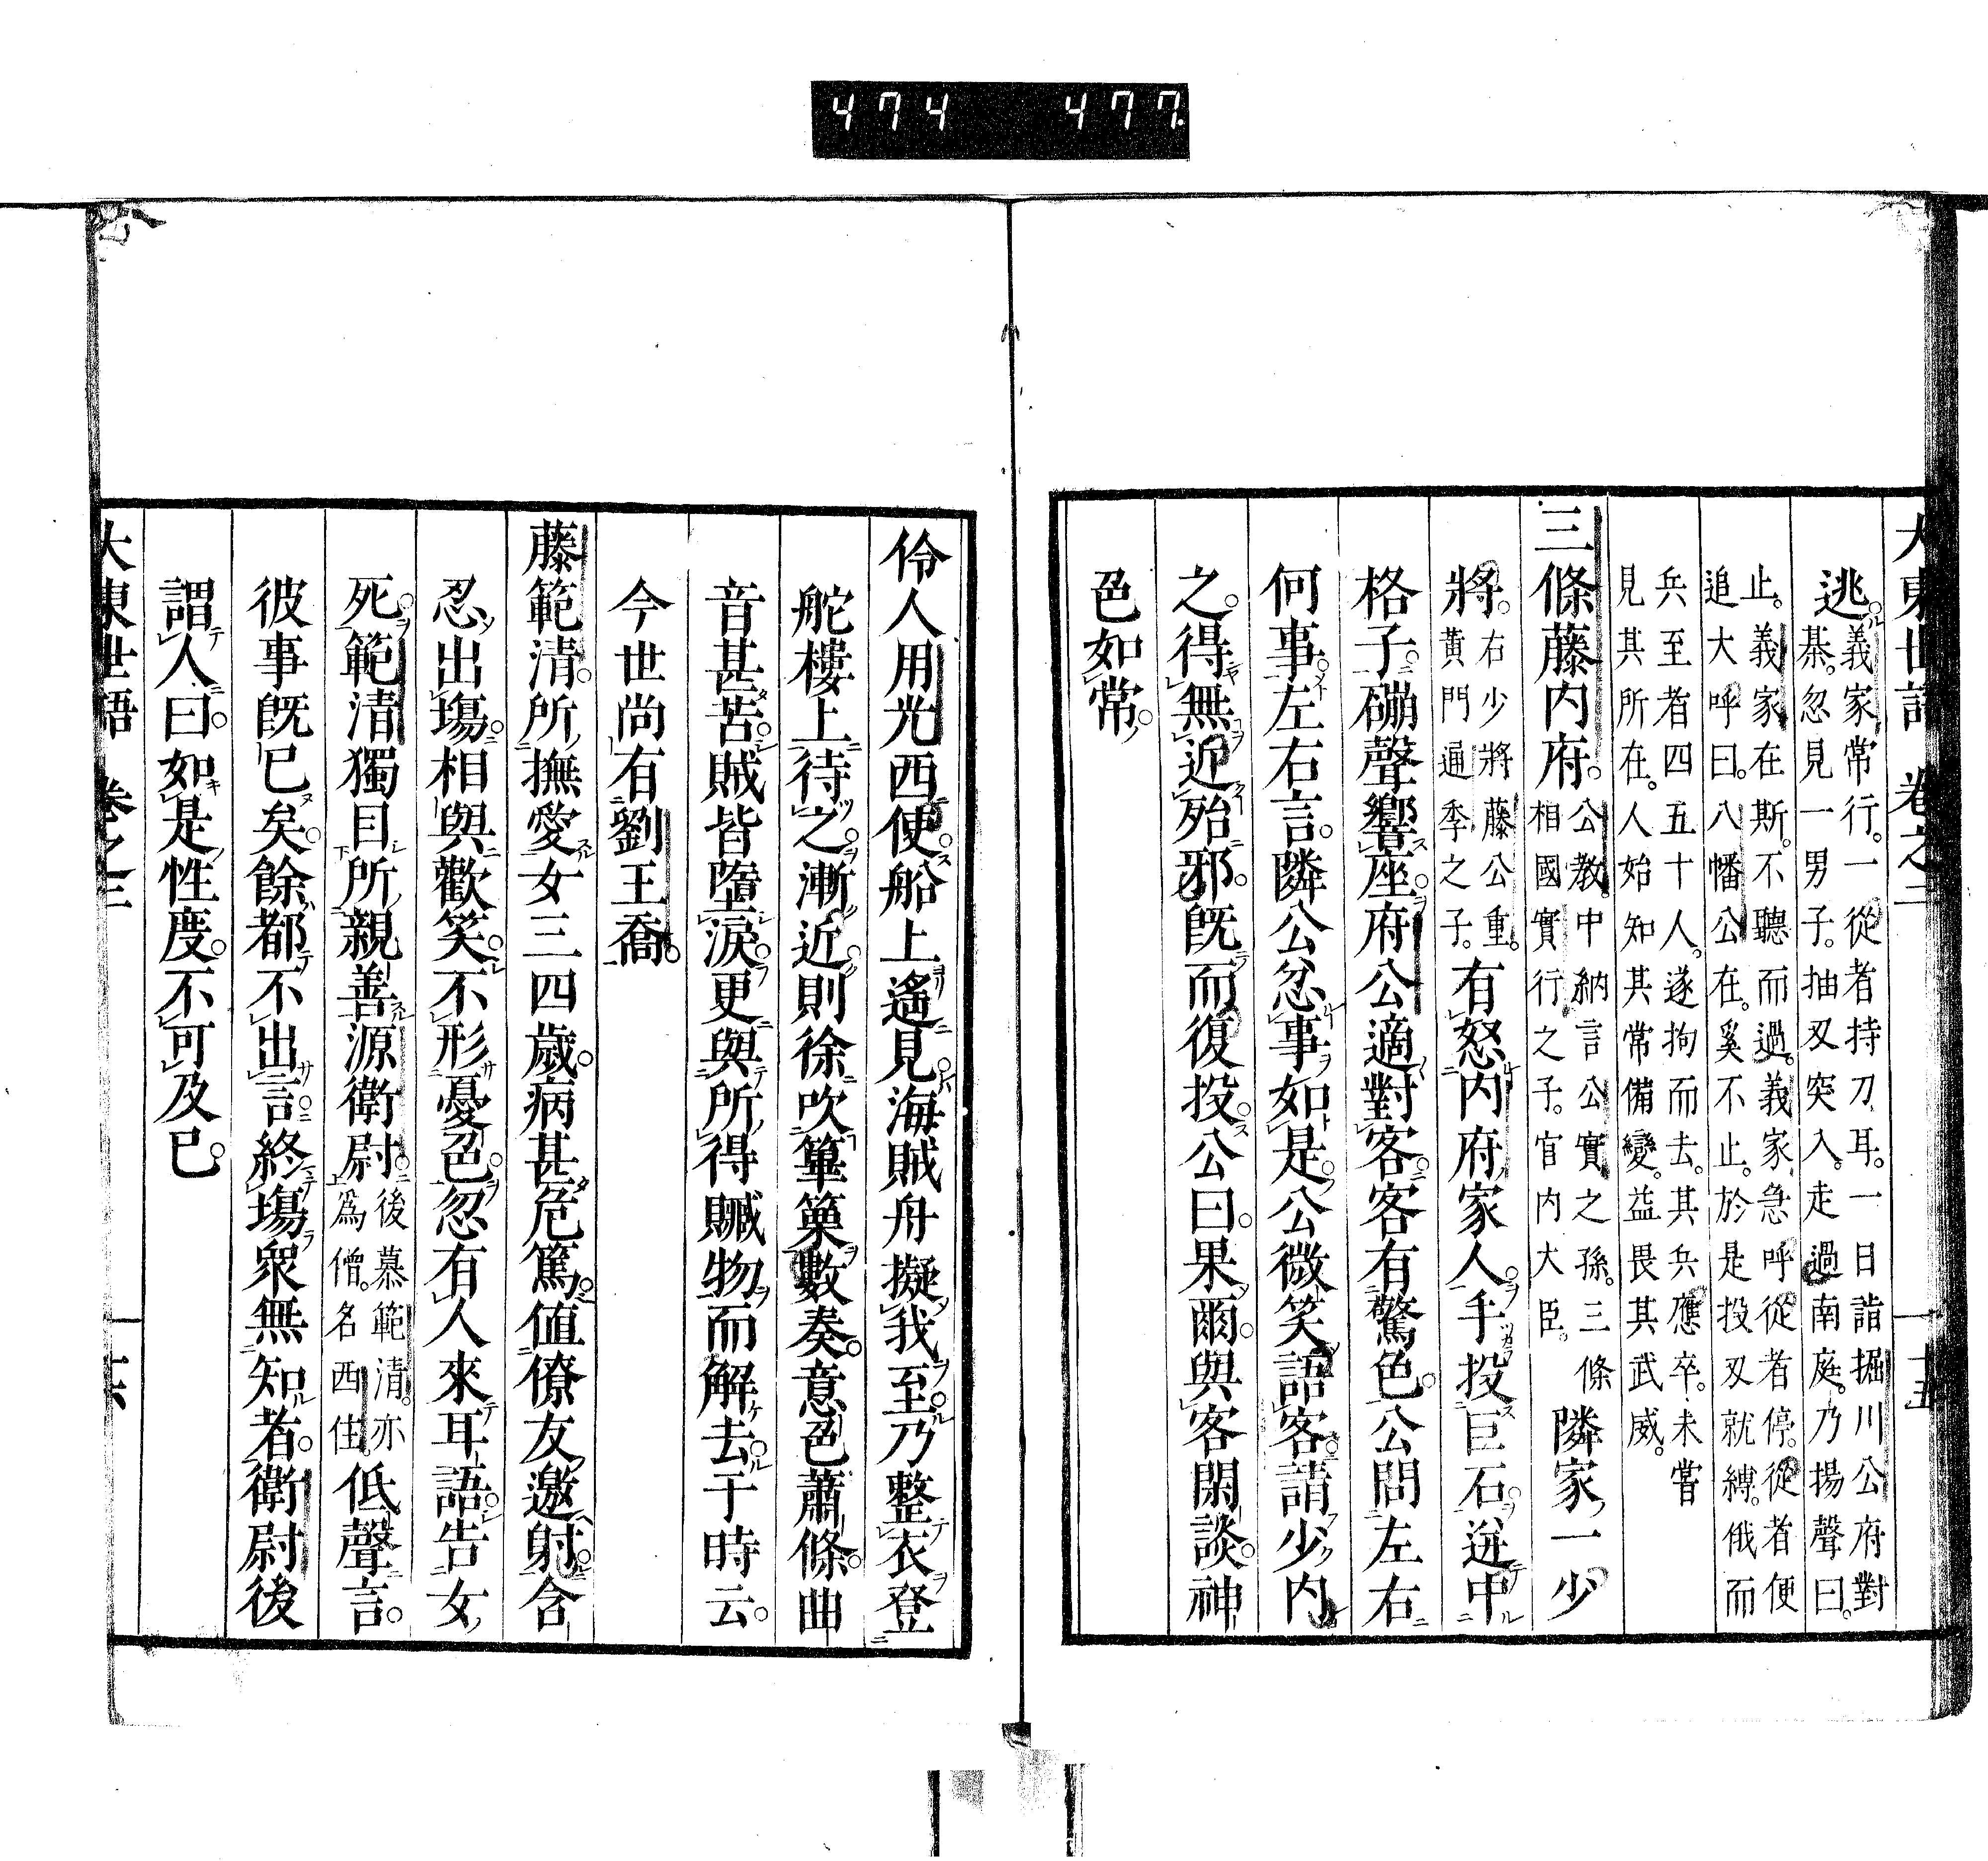 大東世語　卷之三　十五
逃。義家常行。一從者持刀耳。一日詣掘川公府對
棊。忽見一男子。抽刃突入。走過南庭。乃揚聲曰。
止。義家在斯。不聽而過。義家急呼從者停。從者便
追大呼曰。八幡公在。奚不止。於是投刃就縛。俄而
兵至者四五十人。遂拘而去。其兵應卒。未嘗
見其所在。人始知其常備變。益畏其武威。
三條藤内府。公教。中納言公實之孫。三條
相國實行之子。官内大臣。隣家一少
將。右少將藤公重。
黃門通季之子。有怒内府家人。手投巨石。迸中
格子。磞聲響座。府公適對客。客有驚色。公問左右
何事。左右言。隣公忿事如是。公微笑語客。請少内
之。得無近殆邪。既而復投。公曰。果爾。與客閑談。神
色如常。
伶人用光西使。船上遙見海賊舟擬我至。乃整衣登
舵樓上待之。漸近。則徐吹篳篥數奏。意色蕭條。曲
音甚苦。賊皆墮淚。更與所得贓物而解去。于時云。
今世尚有劉王喬。
藤範清。所撫愛女三四歲。病甚危篤。値僚友邀射。含
忍出塲。相與歡笑。不形憂色。忽有人來耳語。告女
死。範清獨目所親善源衛尉。後慕範清。亦
爲僧。名西住。低聲言。
彼事既已矣。餘都不出言。終塲衆無知者。衛尉後
謂人曰。如是性度。不可及已。
大東世語　卷之三　十六
474　477